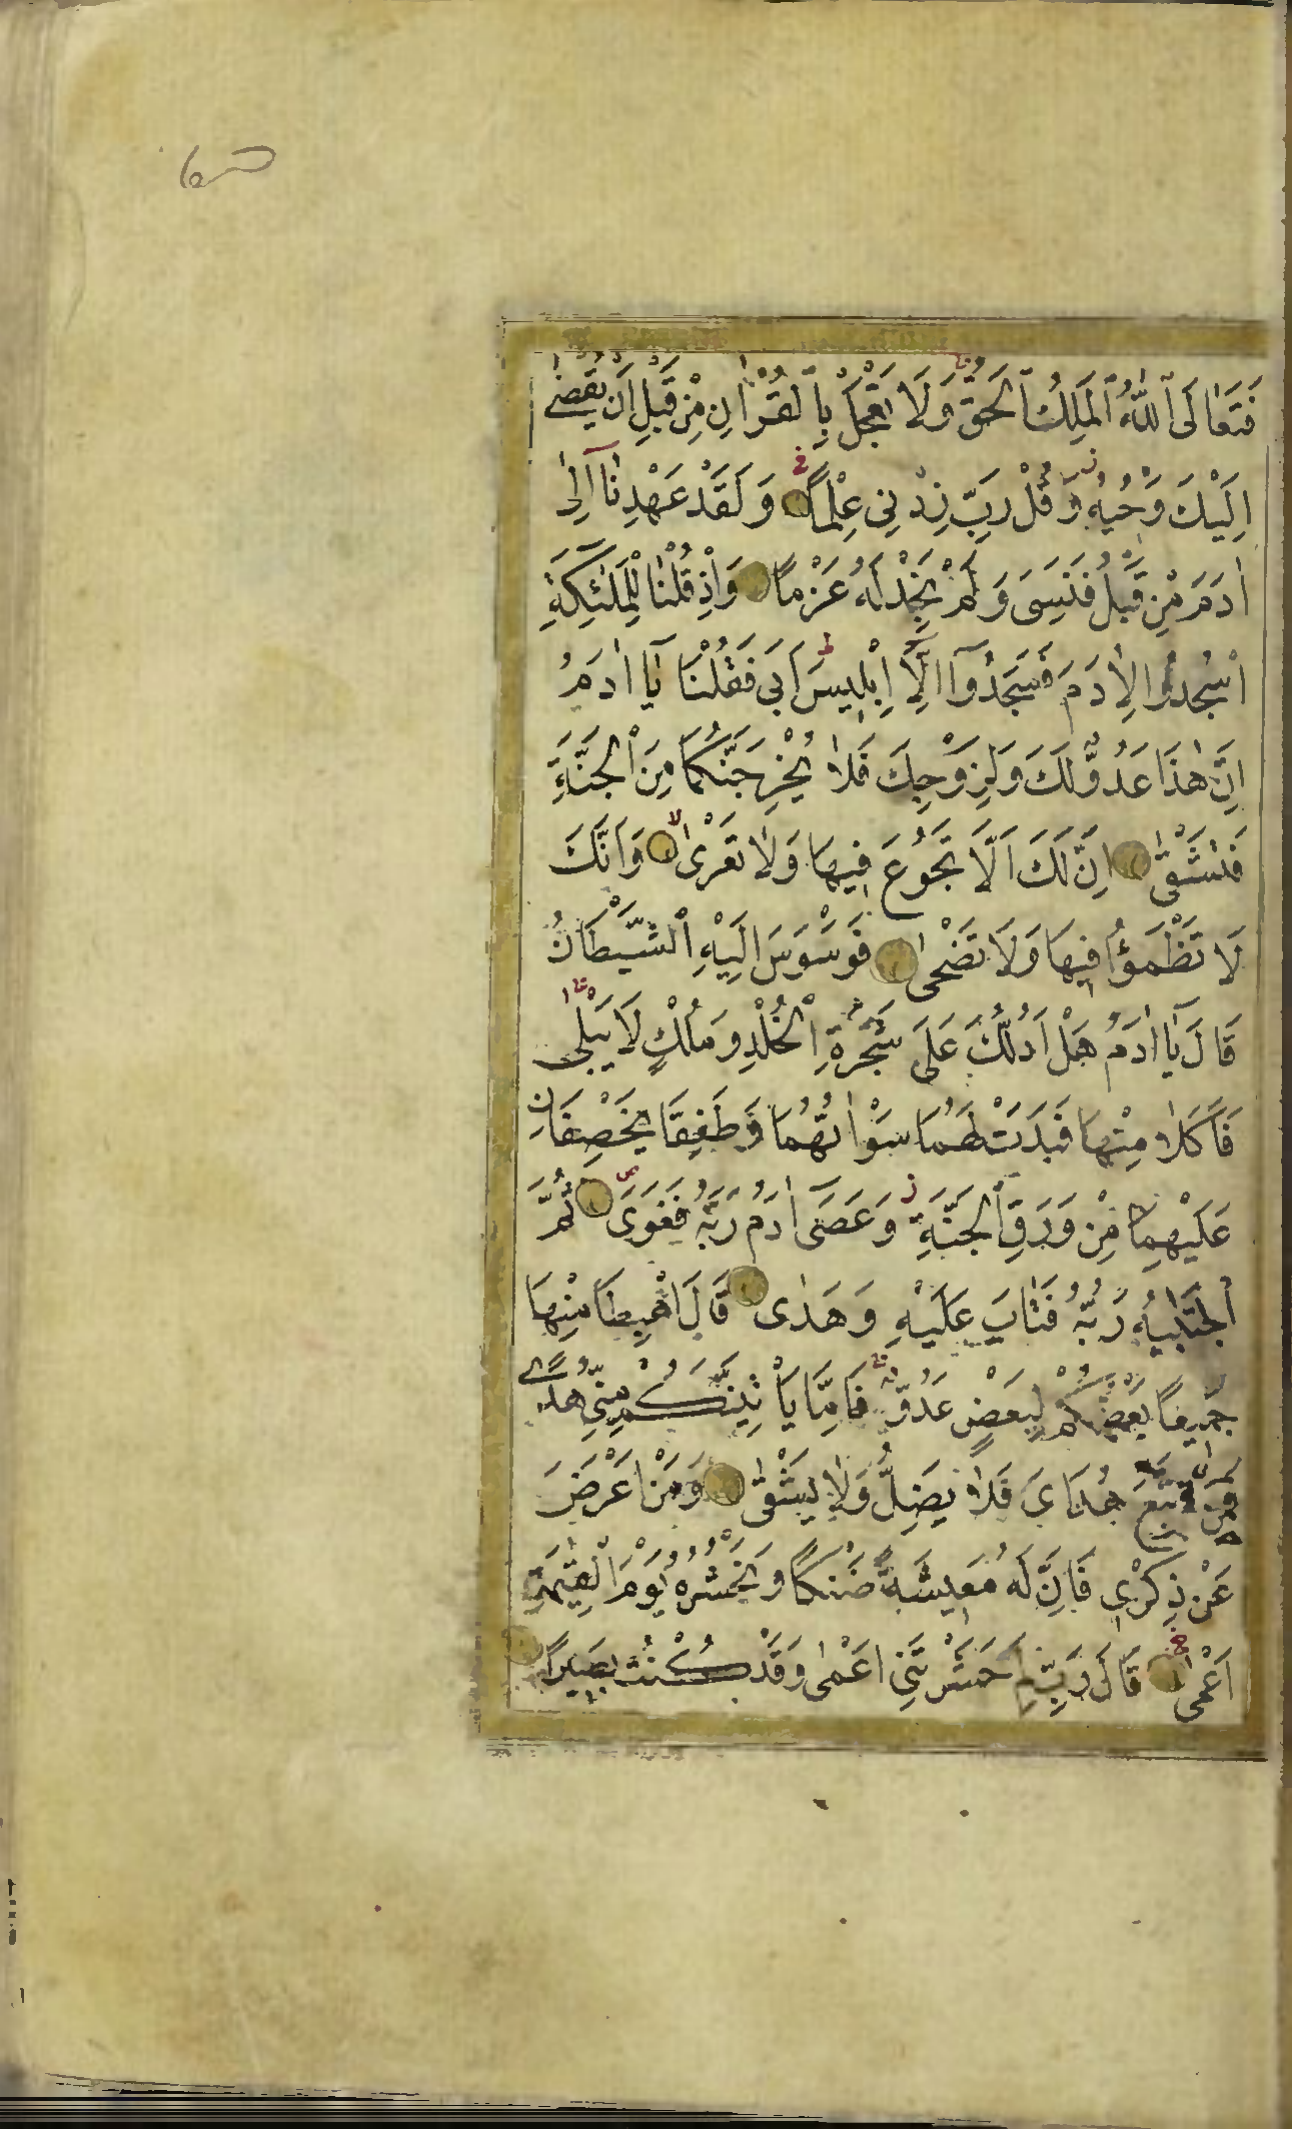 فَتَعَالَى ٱللّٰهُ ٱلْمَلِكُ ٱلْحَقُّ وَلَا تَعْجَلْ بِٱلْقُرْاٰنِ مِنْ قَبْلِ اَنْ يُقْضٰى
اِلَيْكَ وَحْيُهُ وَقُلْ رَبِّ زِدْنِي عِلْمًا وَلَقَدْ عَهِدْنَآ اِلٰى
اٰدَمَ مِنْ قَبْلُ فَنَسِيَ وَلَمْ نَجِدْ لَهُ عَزْمًا وَاِذْ قُلْنَا لِلْمَلٰئِكَةِ
اسْجُدُوا لِاٰدَمَ فَسَجَدُوٓا اِلَّآ اِبْلِيسَ اَبَى فَقُلْنَا يَآ اٰدَمُ
اِنَّ هٰذَا عَدُوٌّ لَكَ وَلِزَوْجِكَ فَلَا يُخْرِجَنَّكُمَا مِنَ الْجَنَّةِ
فَتَشْقٰى اِنَّ لَكَ اَلَّا تَجُوعَ فِيهَا وَلَا تَعْرٰى وَاَنَّكَ
لَا تَظْمَؤُا فِيهَا وَلَا تَضْحٰى فَوَسْوَسَ اِلَيْهِ الشَّيْطَانُ
قَالَ يَآ اٰدَمُ هَلْ اَدُلُّكَ عَلَى شَجَرَةِ الْخُلْدِ وَمُلْكٍ لَا يَبْلٰى
فَاَكَلَا مِنْهَا فَبَدَتْ لَهُمَا سَوْاٰتُهُمَا وَطَفِقَا يَخْصِفَانِ
عَلَيْهِمَا مِنْ وَرَقِ الْجَنَّةِ وَعَصَى اٰدَمُ رَبَّهُ فَغَوَى ثُمَّ
اجْتَبٰيهُ رَبُّهُ فَتَابَ عَلَيْهِ وَهَدٰى قَالَ اهْبِطَا مِنْهَا
جَمِيعًا بَعْضُكُمْ لِبَعْضٍ عَدُوٌّ فَاِمَّا يَاْتِيَنَّكُمْ مِنِّي هُدًى
فَمَنِ اتَّبَعَ هُدَايَ فَلَا يَضِلُّ وَلَا يَشْقٰى وَمَنْ اَعْرَضَ
عَنْ ذِكْرِي فَاِنَّ لَهُ مَعِيشَةً ضَنْكًا وَنَحْشُرُهُ يَوْمَ الْقِيٰمَةِ
اَعْمٰى قَالَ رَبِّ لِمَ حَشَرْتَنِي اَعْمٰى وَقَدْ كُنْتُ بَصِيرًا